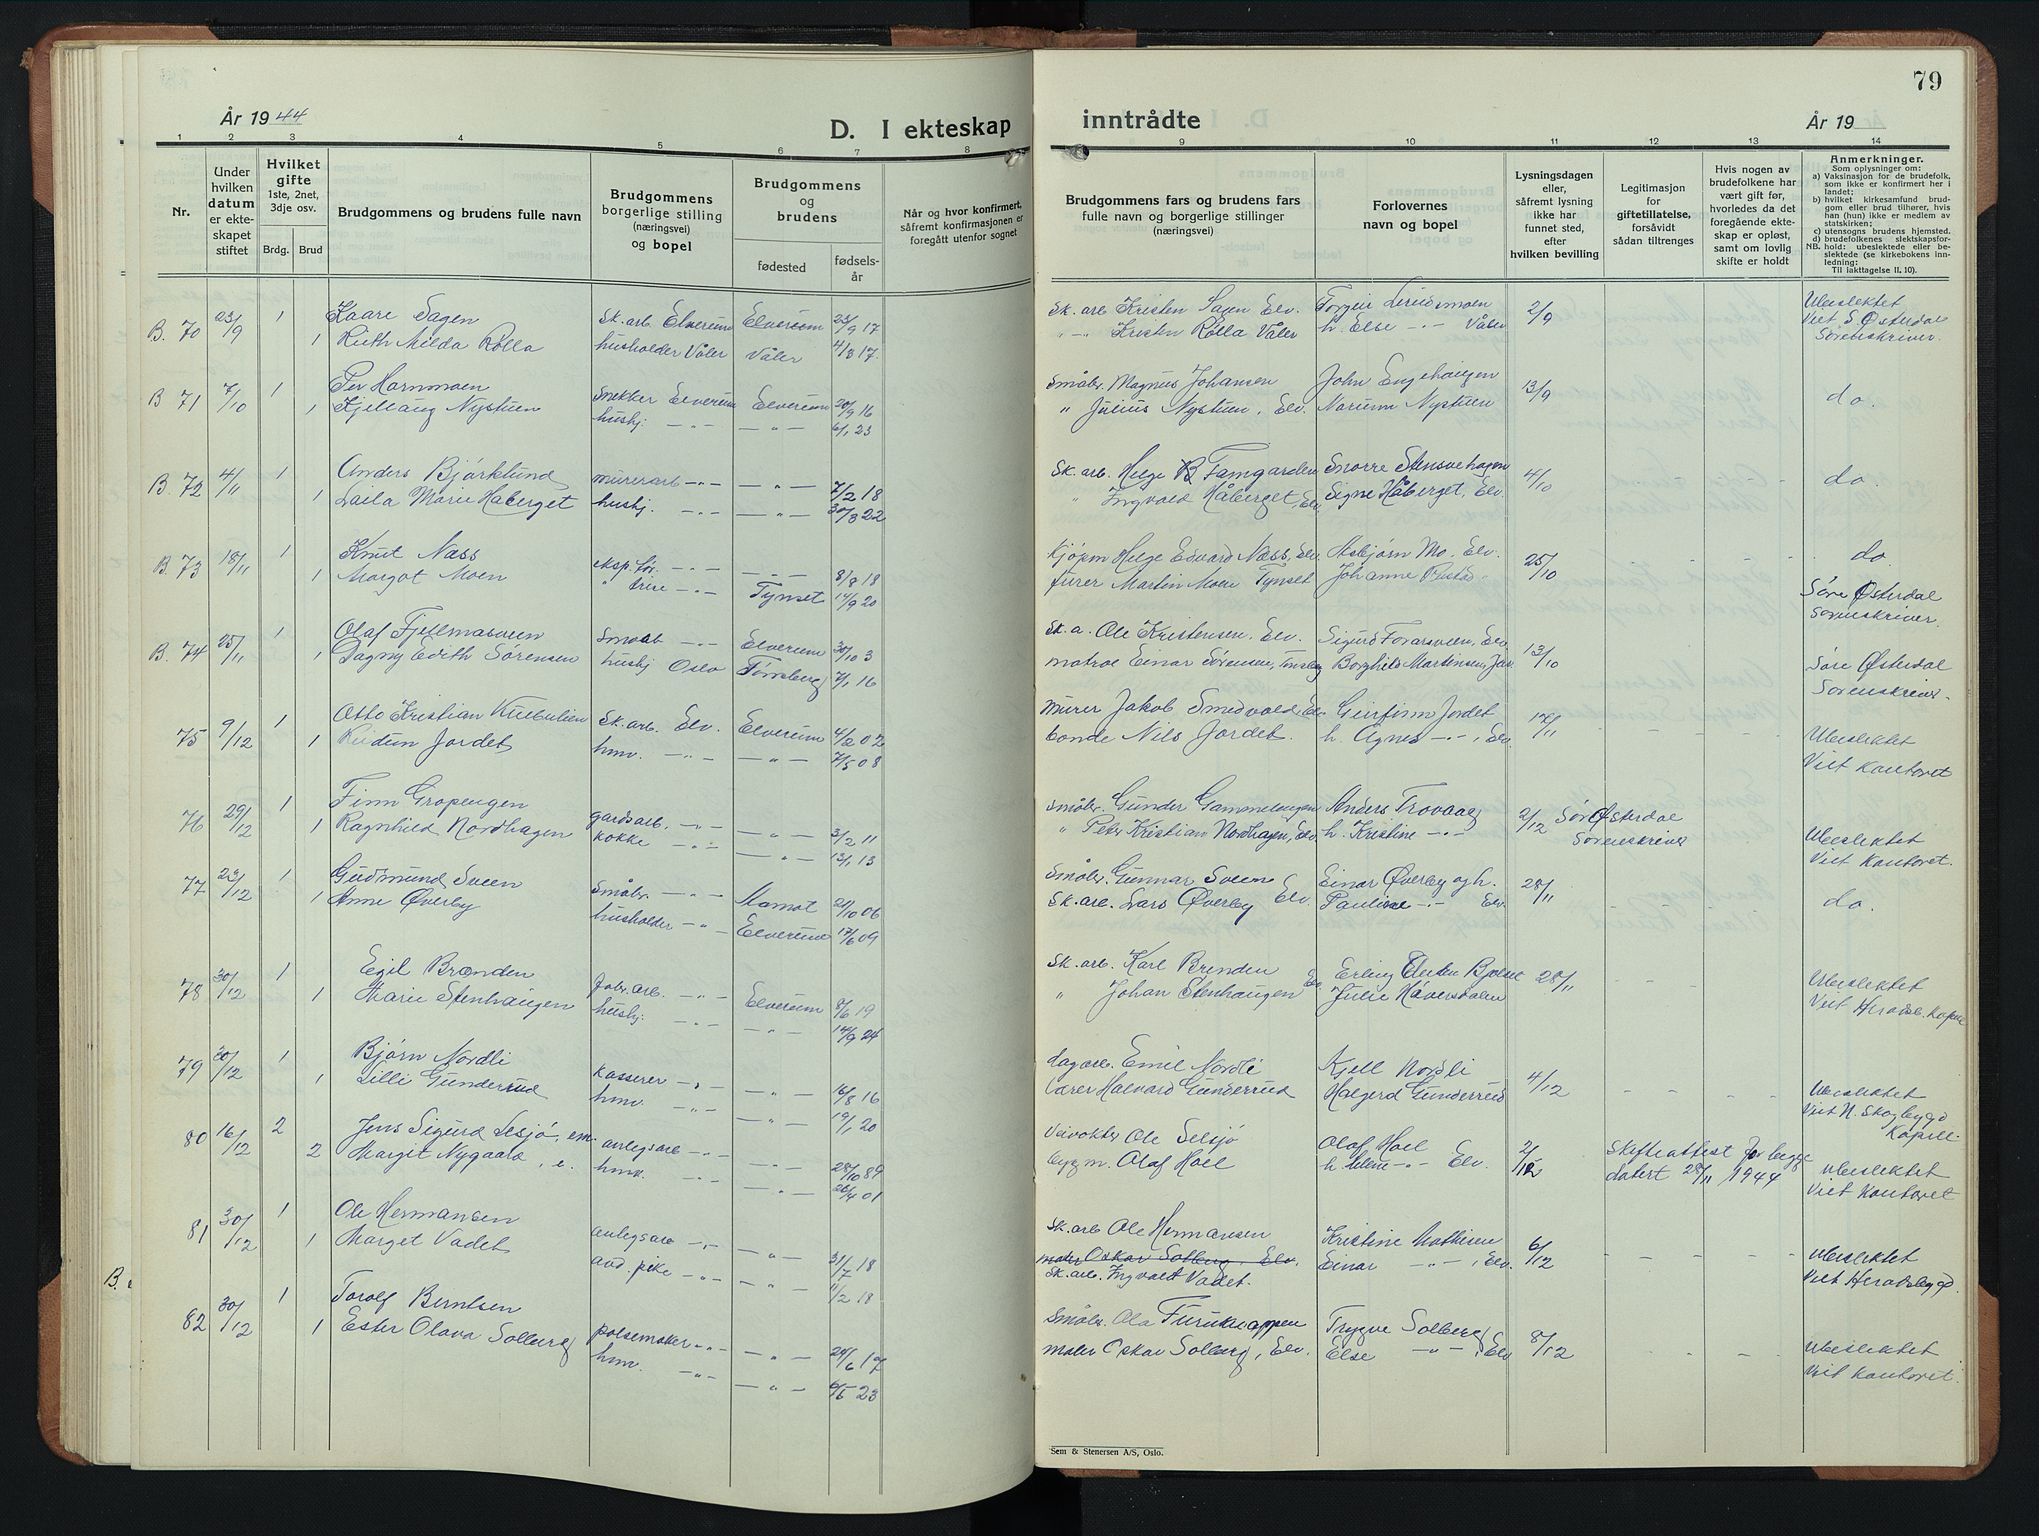 79
År 1944
D. I ekteskap inntrådte
År 19
1 2 3 4 5 6 7 8 9 10 11 12 13 14
Nr.
Under hvilken datum er ekteskapet stiftet
Hvilket gifte 1ste, 2net, 3dje osv.
Brdg. Brud
Brudgommens og brudens fulle navn
Brudgommens borgerlige stilling (næringsvei) og bopel
Brudgommens og brudens
fødested
fødselsår
Når og hvor konfirmert, såfremt konfirmasjonen er foregått utenfor sognet
Brudgommens fars og brudens fars fulle navn og borgerlige stillinger (næringsvei)
Forlovernes navn og bopel
Lysningsdagen eller, såfremt lysning ikke har funnet sted, efter hvilken bevilling
Legitimasjon for giftetillatelse, forsåvidt sådan tiltrenges
Hvis nogen av brudefolkene har vært gift før, hvorledes da det foregående ekteskap er opløst, samt om lovlig skifte er holdt
Anmerkninger.
Som oplysninger om:
a) Vaksinasjon for de brudefolk, som ikke er konfirmert her i landet;
b) hvilket kirkesamfund brudgom eller brud tilhører, hvis han (hun) ikke er medlem av statskirken;
c) utensogns brudens hjemsted.
d) brudefolkenes slektskapsforhold: ubeslektede eller beslektede (se kirkebokens innledning:
NB. Til iakttagelse II, 10).
B. 70 23/9 1 Kaare Sagen Sk. arb. Elverum Elverum 23/9 17 Sk. arb. Kristen Sagen Elv. 2/9 Ubeslektet
1 Ruth Milda Rölla husholder Våler Våler 4/3 17. Kristen Rölla Våler h. Else -"- Våler Viet S. Østerdal
Sorenskriver.
B 71 7/10 1 Per Hornmoen Snekker Elverum Elverum 20/9 16 Småbr. Magnus Johansen John Engehaugen 13/9 do.
1 Kjellaug Nystuen hushj. -"- -"- 6/1 23 " Julius Nystuen, Elv. Marum Nystuen
B. 72 4/11 1 Anders Bjørklund murerarb -"- -"- 7/2 18 Sk. arb. Helge Famgarden Snorre Stensvehagen 4/10 do.
1 Laila Marie Haberget hushj. -"- -"- 30/3 22 " Ingvald Håberget, Elv. Signe Håberget, Elv.
B. 73 18/11 1 Knut Næss eksp. før. -"- -"- 8/8 18 Kjøpm Helge Edvard Næss, Elv. Asbjørn Mo. Elv. 25/10 do.
1 Margot Moen " trise -"- Tynset 14/9 20 furer Martin Moen Tynset Johanne
Søre Østerdal
Sorenskriver.
B. 74 25/11 1 Olaf Fjellmosveen Småb -"- Elverum 30/10 3 Sk. a. Ole Kristensen. Elv. Sigurd 13/10
1 Dagny Edith Sørensen hushj Oslo Tønsberg 7/1 16 matros Einar Sørensen, Tønsbg Borghild Martensen, Søre Østerdal
Sorenskriver.
75 9/12 1 Otto Kristian Kubulien Sk. arb. Elv. Elverum 4/2 02 murer Jakob Smedvold, Elv. Geirfinn Jordet 17/11 Ubeslektet
1 Reidun Jordet hmv. -"- -"- 7/5 08 bonde Nils Jordet. h. Agnes -"-, Elv. Viet kontoret
76 29/12 1 Finn Gropengen gardsarb. -"- -"- 3/2 11 Småbr. Gunder Gammelengen Anders Trovaag 2/12 Sør Østerdal Ubeslektet
1 Ragnhild Nordhagen kokke -"- -"- 13/1 13 " Peter Kristian Nordhagen, Elv. h. Kristine -"- Sorenskriver Viet kontoret.
77 23/12 1 Gudmund Sveen Småbr. -"- Åamot 21/10 06 Småbr. Gunnar Sveen Einar Øverby og h. 28/11 do.
1 Anne Øverby husholder -"- Elverum 17/6 09 Sk. arb. Lars Øverby Elv. Pauline -"- Elv.
78 30/12 1 Egil Brænden fabr. arb. -"- Elverum 8/6 19 Sk. arb. Karl Brenden Erling 28/11 Ubeslektet
1 Marie Stenhaugen hushj. -"- -"- 14/9 24 " Johan Stenhaugen Elv. Julie Håversdalen Viet Heradsb. Kapell
79 30/12 1 Bjørn Nordli kasserer -"- -"- 16/8 16 dagarb. Emil Nordli Kjell Nordli 4/12 Ubeslektet
1 Lilli Gunderrud hmv. -"- -"- 19/1 20 Halvard Gunderrud Halgerd Gunderrud Viet N. Skogbygd
Kapell.
80 16/12 2 Jens Sigurd Lesjø, em. anlegsarb -"- -"- 28/10 89 Veivokter Ole Selsjø Olaf Hoel 2/12 Skifteattest for begge Ubeslektet
2 Margit Nygaard, e. hmv. -"- -"- 26/4 01 bygm. Olaf Hoel h. Helene -"- Elv. datert 28/11 1944 Viet kontoret
81 30/12 1 Ole Hermansen anlegsarb -"- -"- 31/7 18 Sk. arb Ole Hermansen Kristine Mathisen 6/12 Ubeslektet
1 Marget Vadet avd. pike -"- -"- 11/2 18 maler Oskar Solberg, Elv. Einar -"-, Elv. Viet Heradsbygd
Sk. arb. Ingvald Vadet.
B.
82 30/12 1 Torolf Berntsen pølsemaker -"- -"- 24/6 17 Småbr. Ola Furuknappen Trygve Solberg 8/12 Ubeslektet
1 Ester Olava Solberg hmv. -"- -"- 6/5 23 maler Oskar Solberg, Elv. Else -"-, Elv Viet kontoret.
Sem & Stenersen A/S, Oslo.